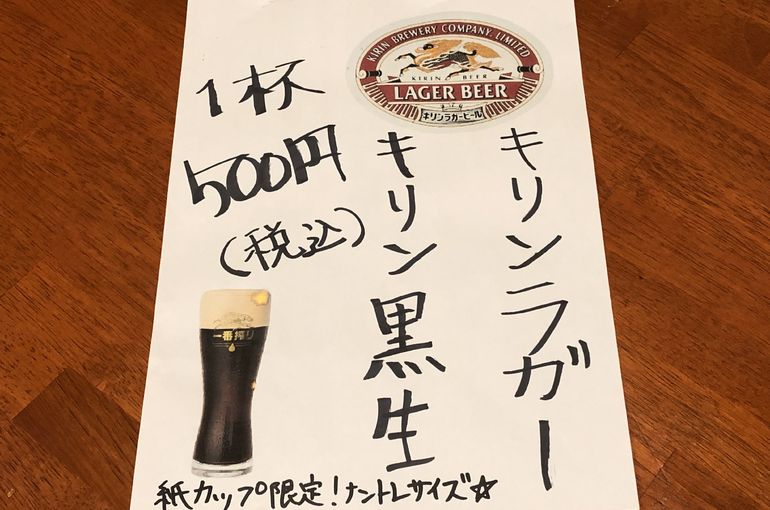 KIRIN BREWERY COMPANY, LIMITED
KIRIN BEER
LAGER BEER
キリンラガービール
キリンラガー
キリン黒生
1杯
500円
(税込)
一番搾り
紙カップ限定!ナントLサイズ☆